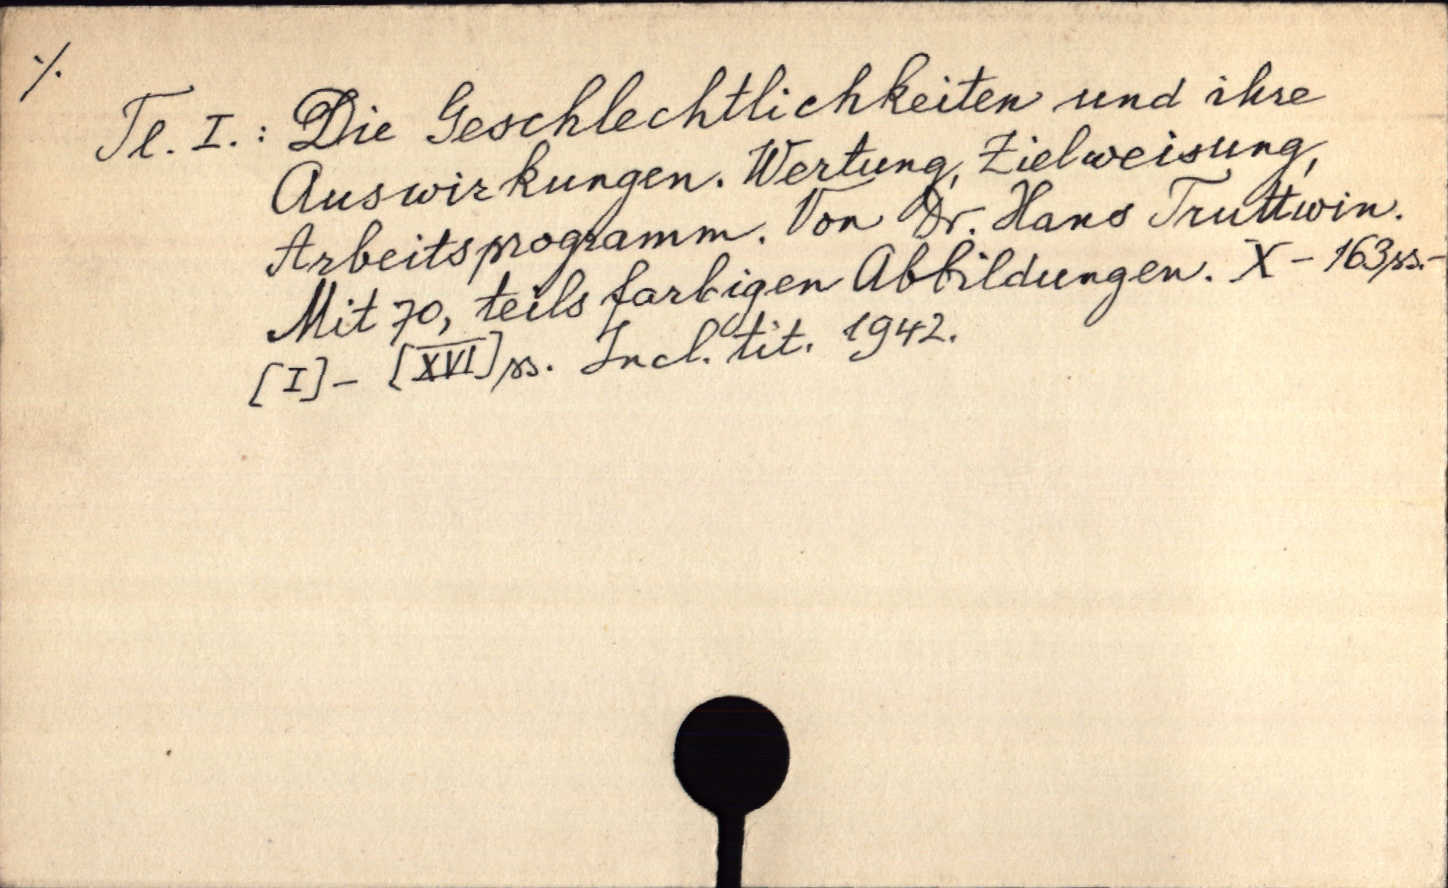 ·/.
Tl. I.: Die Geschlechtlichkeiten und ihre
Auswirkungen. Wertung, Zielweisung,
Arbeitsprogramm. Von Dr. Hans Truttwin.
Mit 70, teils farbigen Abbildungen. X - 163 ss. -
[I] - [XVI] ss. Incl. tit. 1942.